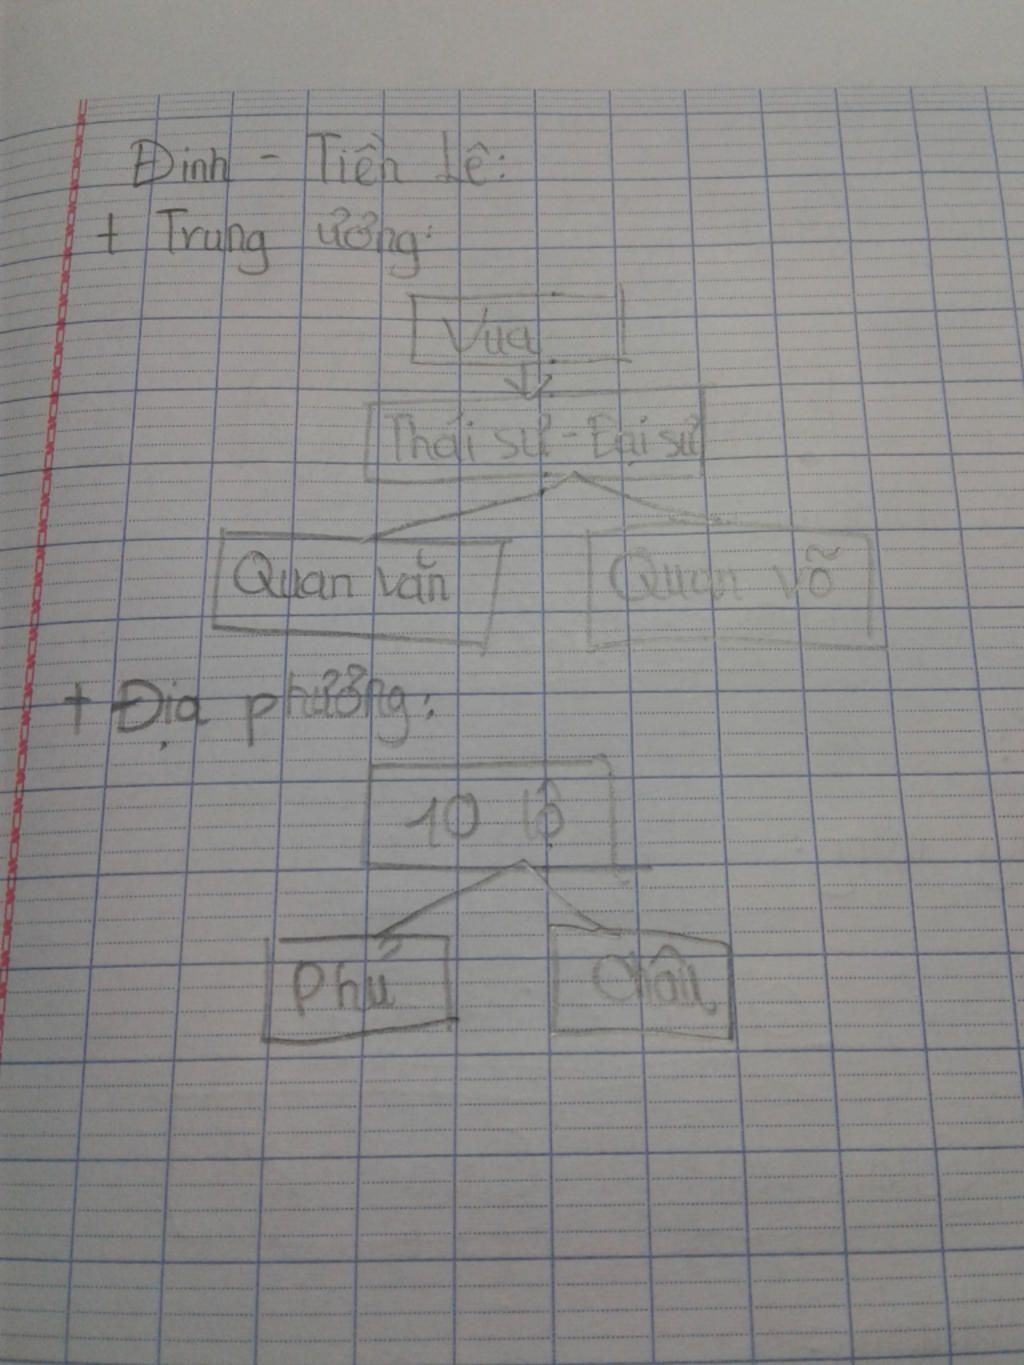 Đinh - Tiền Lê:
+ Trung ương:
Vua
Thái sư - Đại sư
Quan văn
Quan võ
+ Địa phương:
10 lộ
Phủ
Châu